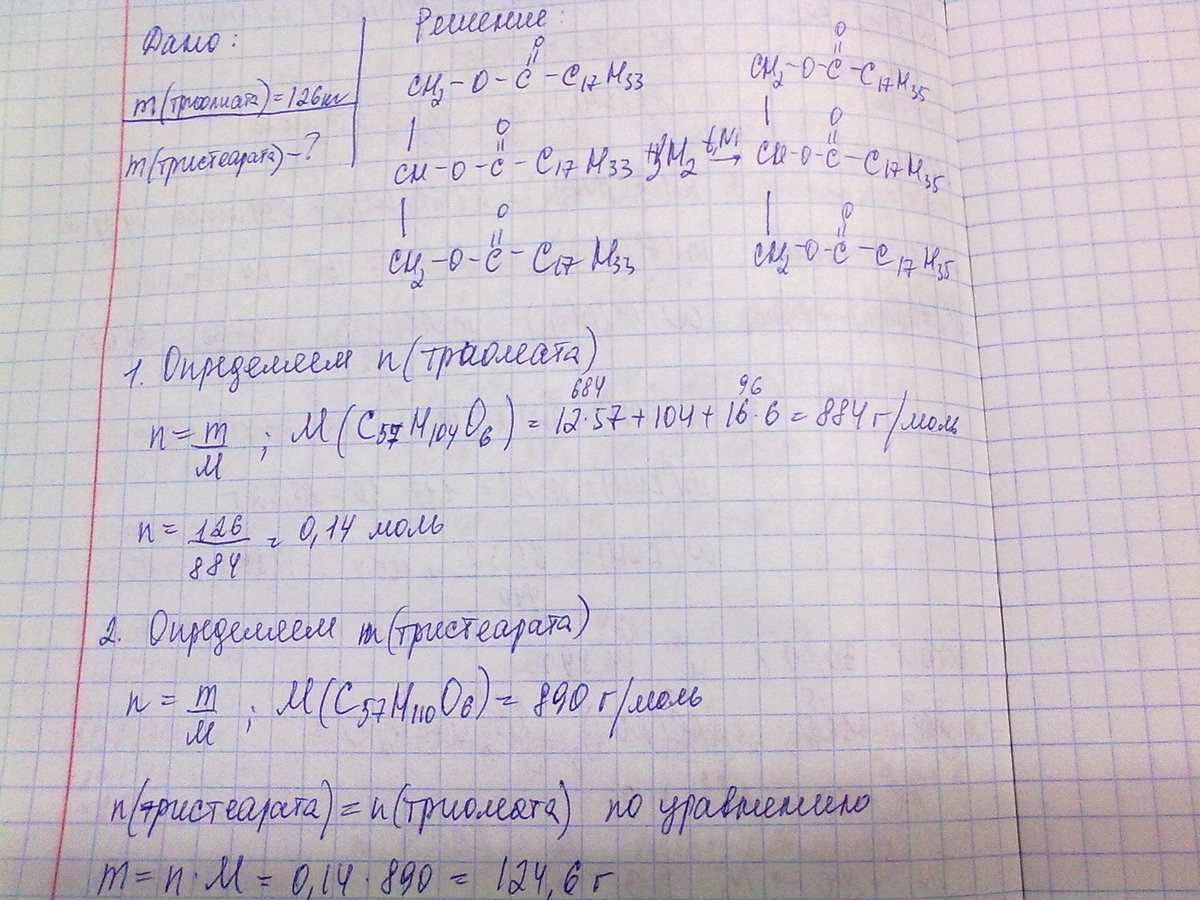 Дано:
Решение:
m(триолиата)=126кг
m(тристеарата)-?
O O
CH₂-O-C-C₁₇H₃₃ CH₂-O-C-C₁₇H₃₅
O O
CH-O-C-C₁₇H₃₃ +3H₂ t,Ni → CH-O-C-C₁₇H₃₅
O O
CH₂-O-C-C₁₇H₃₃ CH₂-O-C-C₁₇H₃₅
1. Определяем n(триолеата)
684 96
n = m/M ; M(C₅₇H₁₀₄O₆) = 12·57+104+16·6 = 884 г/моль
n = 126/884 = 0,14 моль
2. Определяем m(тристеарата)
n = m/M ; M(C₅₇H₁₁₀O₆) = 890 г/моль
n(тристеарата) = n(триолеата) по уравнению
m = n·M = 0,14·890 = 124,6 г